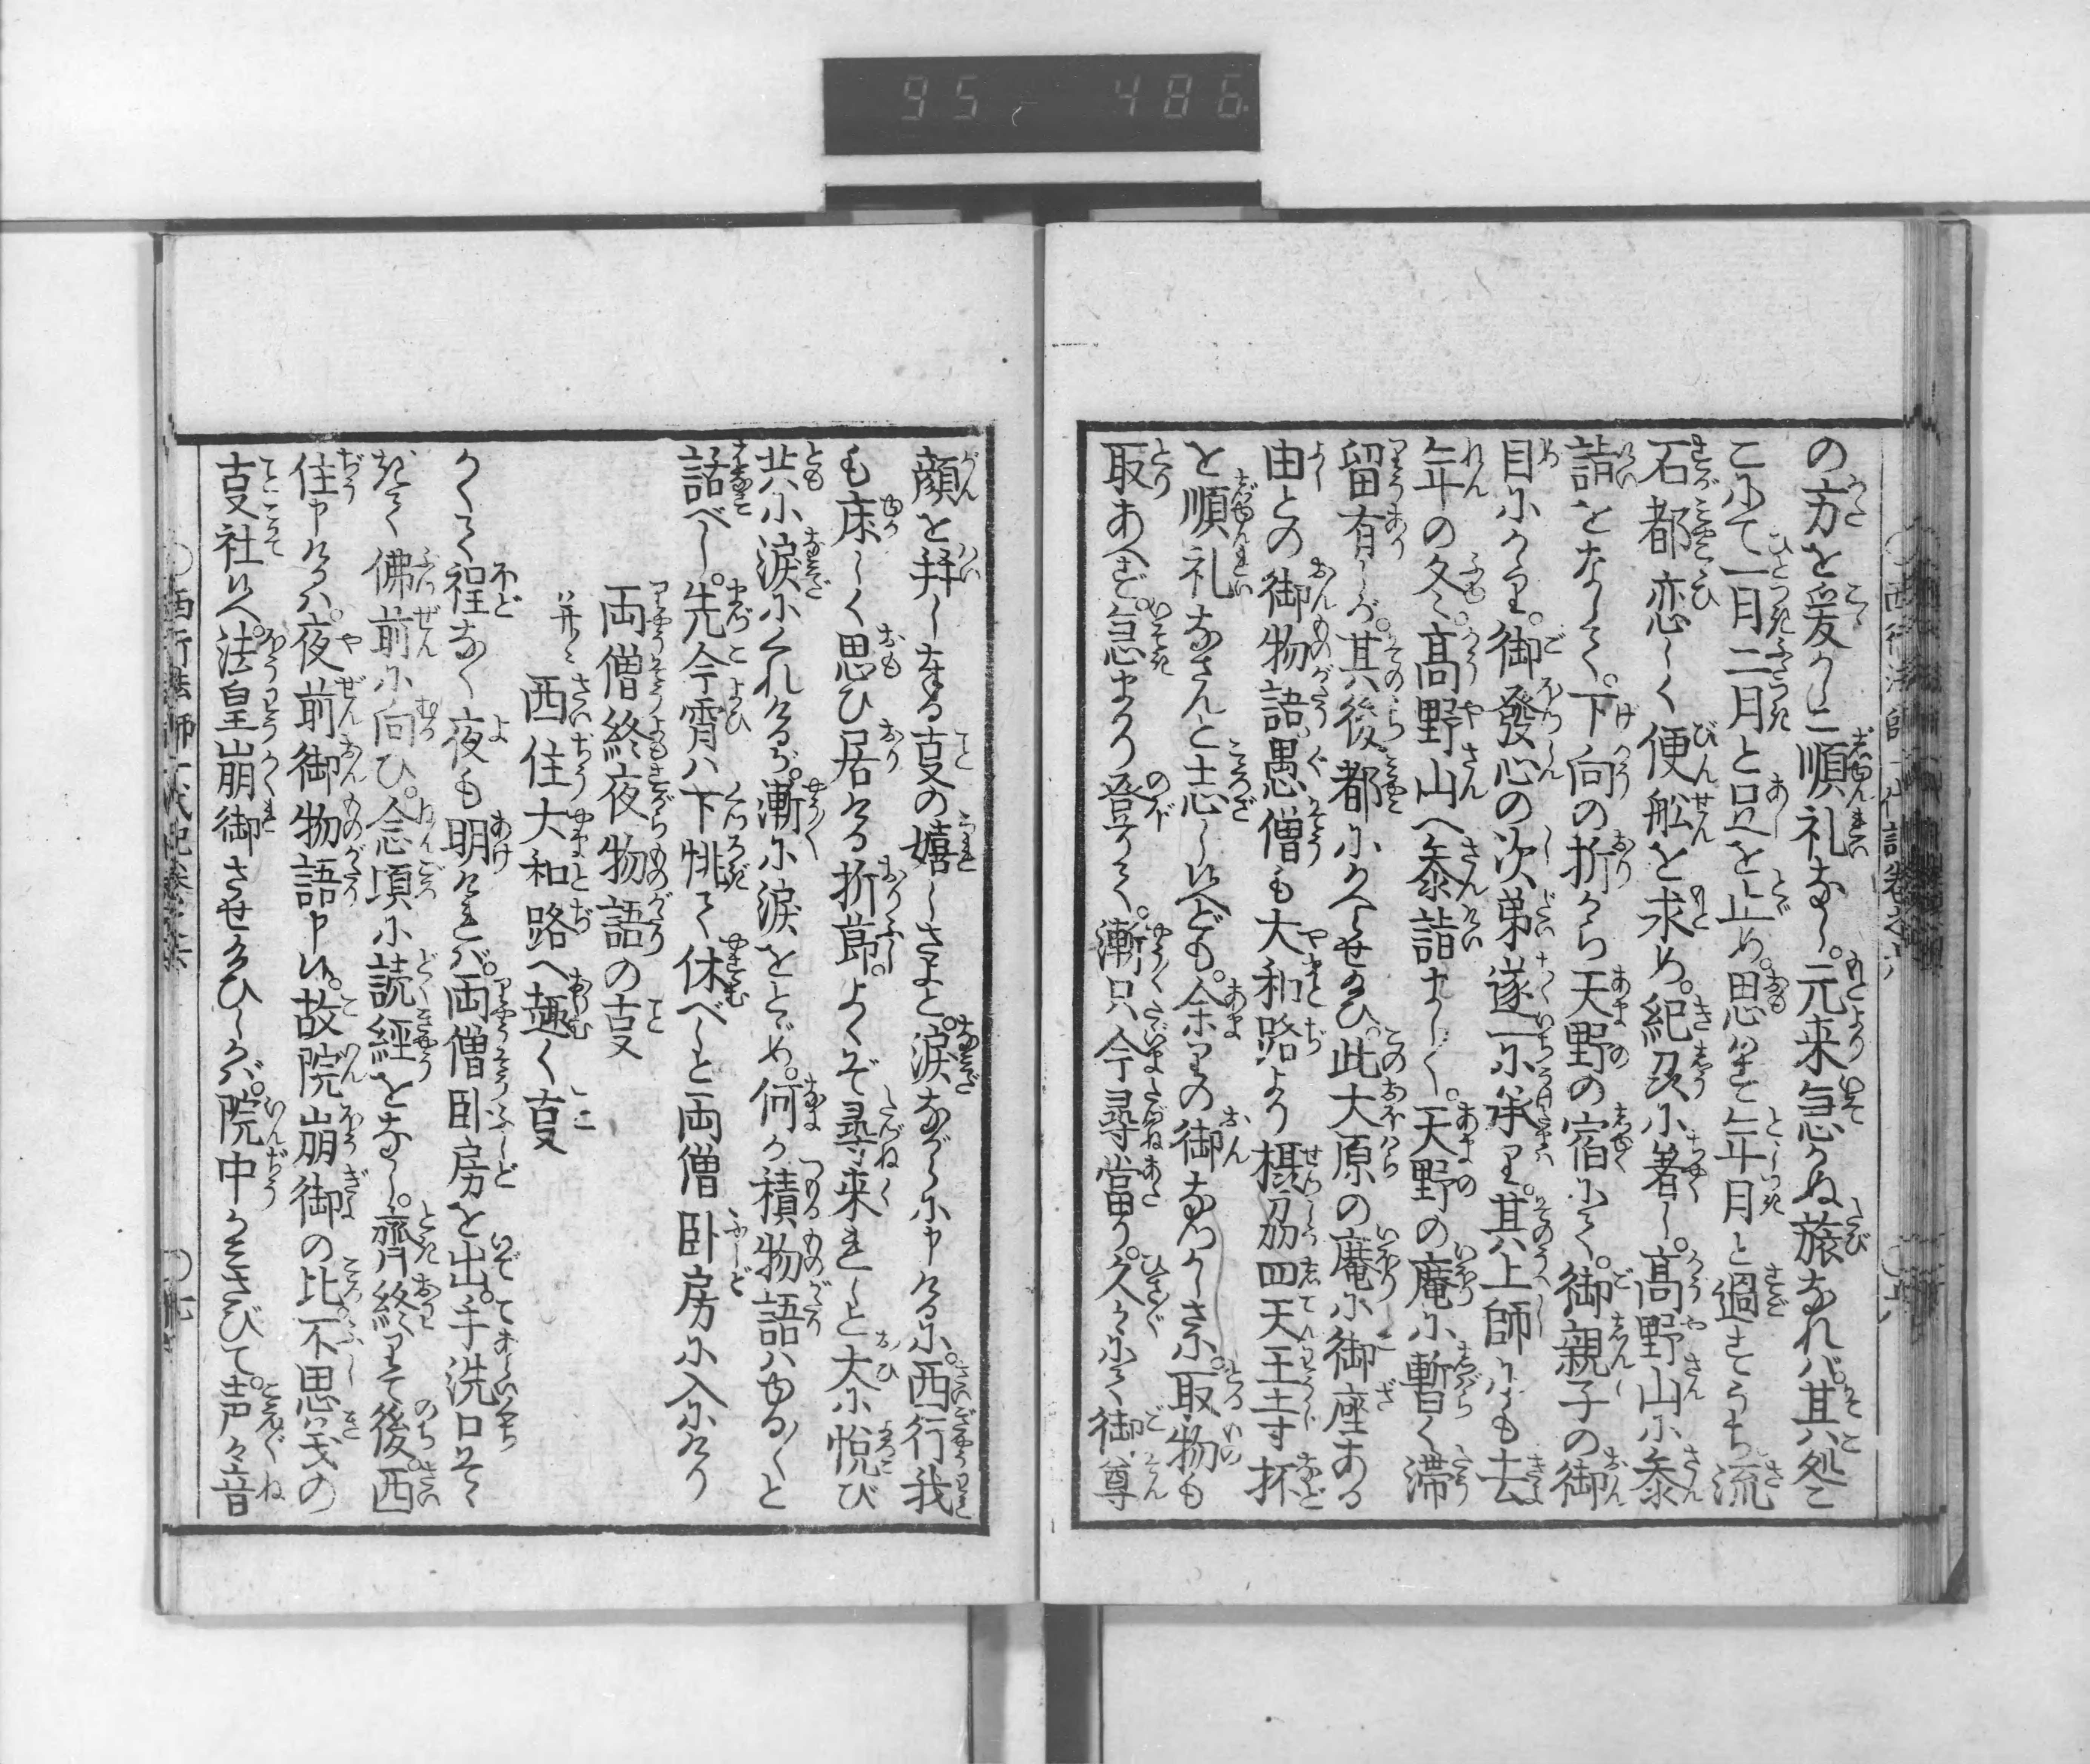 95 - 486
の方を爰かしこ順礼なし。元来急がぬ旅なれバ。其処こ
こにて一月二月と足を止め。思はず年月と過すうち流
石都恋しく便船を求め。紀刕に著し。高野山に参
詣をなして。下向の折から天野の宿にて。御親子の御
目にかゝり。御發心の次弟遂一に承り。其上師にも去
年の冬。高野山へ参詣ましく。天野の庵に暫く滞
留有しが。其後都にかへらせ給ひ。此大原の庵に御座ある
由との御物語。愚僧も大和路より摂刕四天王寺抔
を順礼なさんと志し候へども。余りの御なつかしさに。取物も
取あへず。急まかり登りて。漸只今尋當り。久々にて御尊
顔を拝し奉る㕝の嬉しさよと。涙ながらに申けるに。西行我
も床しく思ひ居ける折節。よくぞ尋来れしと大に悦び
共に涙にくれけるが。漸に涙をとゞめ。何か積物語ハゆる〳〵と
話べし。先今宵ハ下帷て休べしと両僧臥房に入にけり
両僧終夜物語の㕝
并ニ西住大和路へ趣く㕝
かくて程なく夜も明けれバ。両僧臥房を出。手洗口そゝ
ぎて佛前に向ひ。念頃に読經をなし。齋終りて後西
住申けるハ。夜前御物語申候。故院崩御の比不思儀の
㕝社候へ。法皇崩御させ給ひしかバ。院中かきさびて。声々音
西行法師一代記巻之六